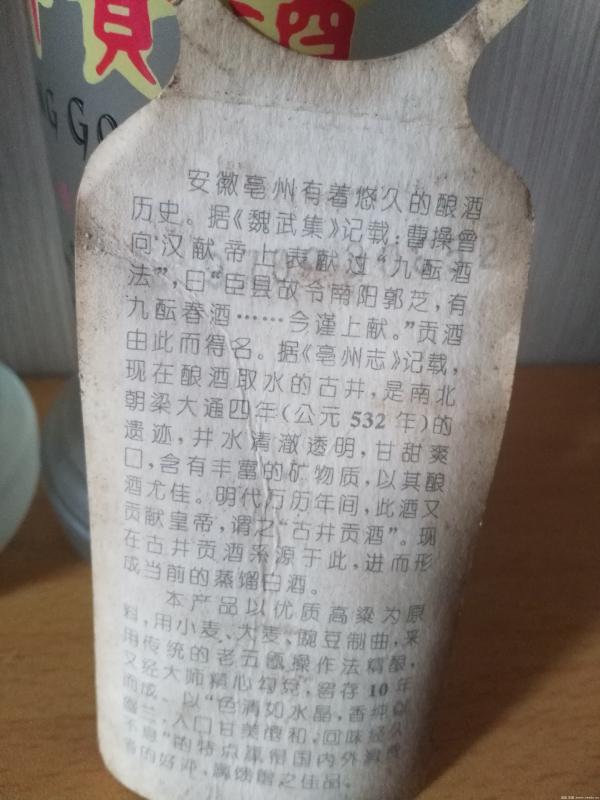 贡酒
GGO
安徽亳州有着悠久的酿酒
历史。据《魏武集》记载：曹操曾
向汉献帝上表献过“九酝酒
法”，曰“臣县故令南阳郭芝，有
九酝春酒……今谨上献。”贡酒
由此而得名。据《亳州志》记载，
现在酿酒取水的古井，是南北
朝梁大通四年(公元 532 年)的
遗迹，井水清澈透明，甘甜爽
口，含有丰富的矿物质，以其酿
酒尤佳。明代万历年间，此酒又
贡献皇帝，谓之“古井贡酒”。现
在古井贡酒来源于此，进而形
成当前的蒸馏白酒。
本产品以优质高粱为原
料，用小麦、大麦、豌豆制曲，采
用传统的老五甑操作法精酿，
又经大师精心勾兑，窖存 10 年
而成。以“色清如水晶，香纯似
幽兰，入口甘美醇和，回味经久
不息”的特点赢得国内外消费
者的好评，满馈赠之佳品。